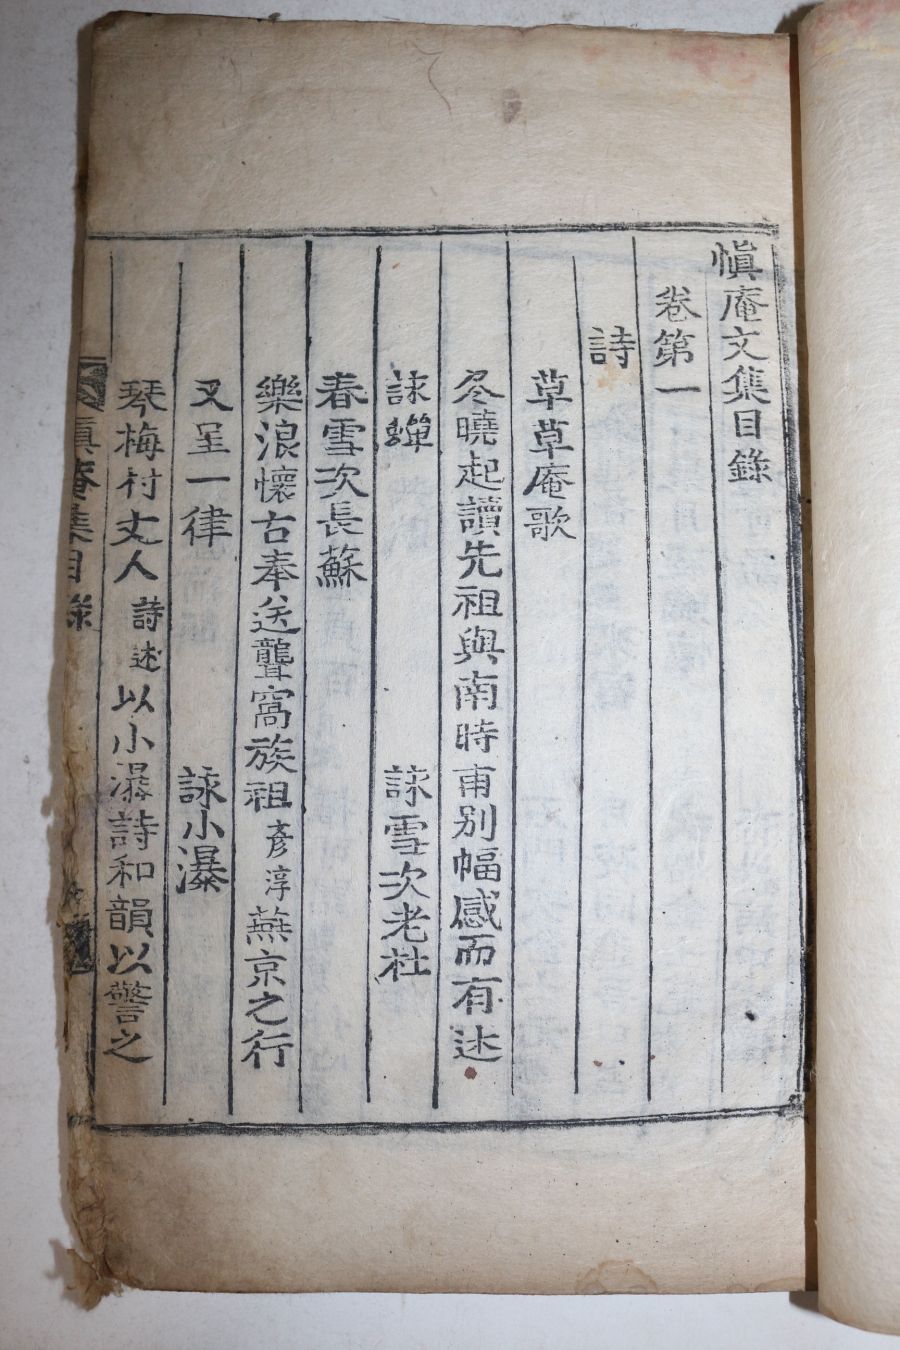 愼庵文集目錄
卷第一
詩
草草庵歌
冬曉起讀先祖與南時甫別幅感而有述
詠蟬 詠雪次老杜
春雪次長蘇
樂浪懷古奉送聾窩族祖彥淳燕京之行
又呈一律 詠小瀑
琴梅村丈人詩述以小瀑詩和韻以警之
愼庵集目錄